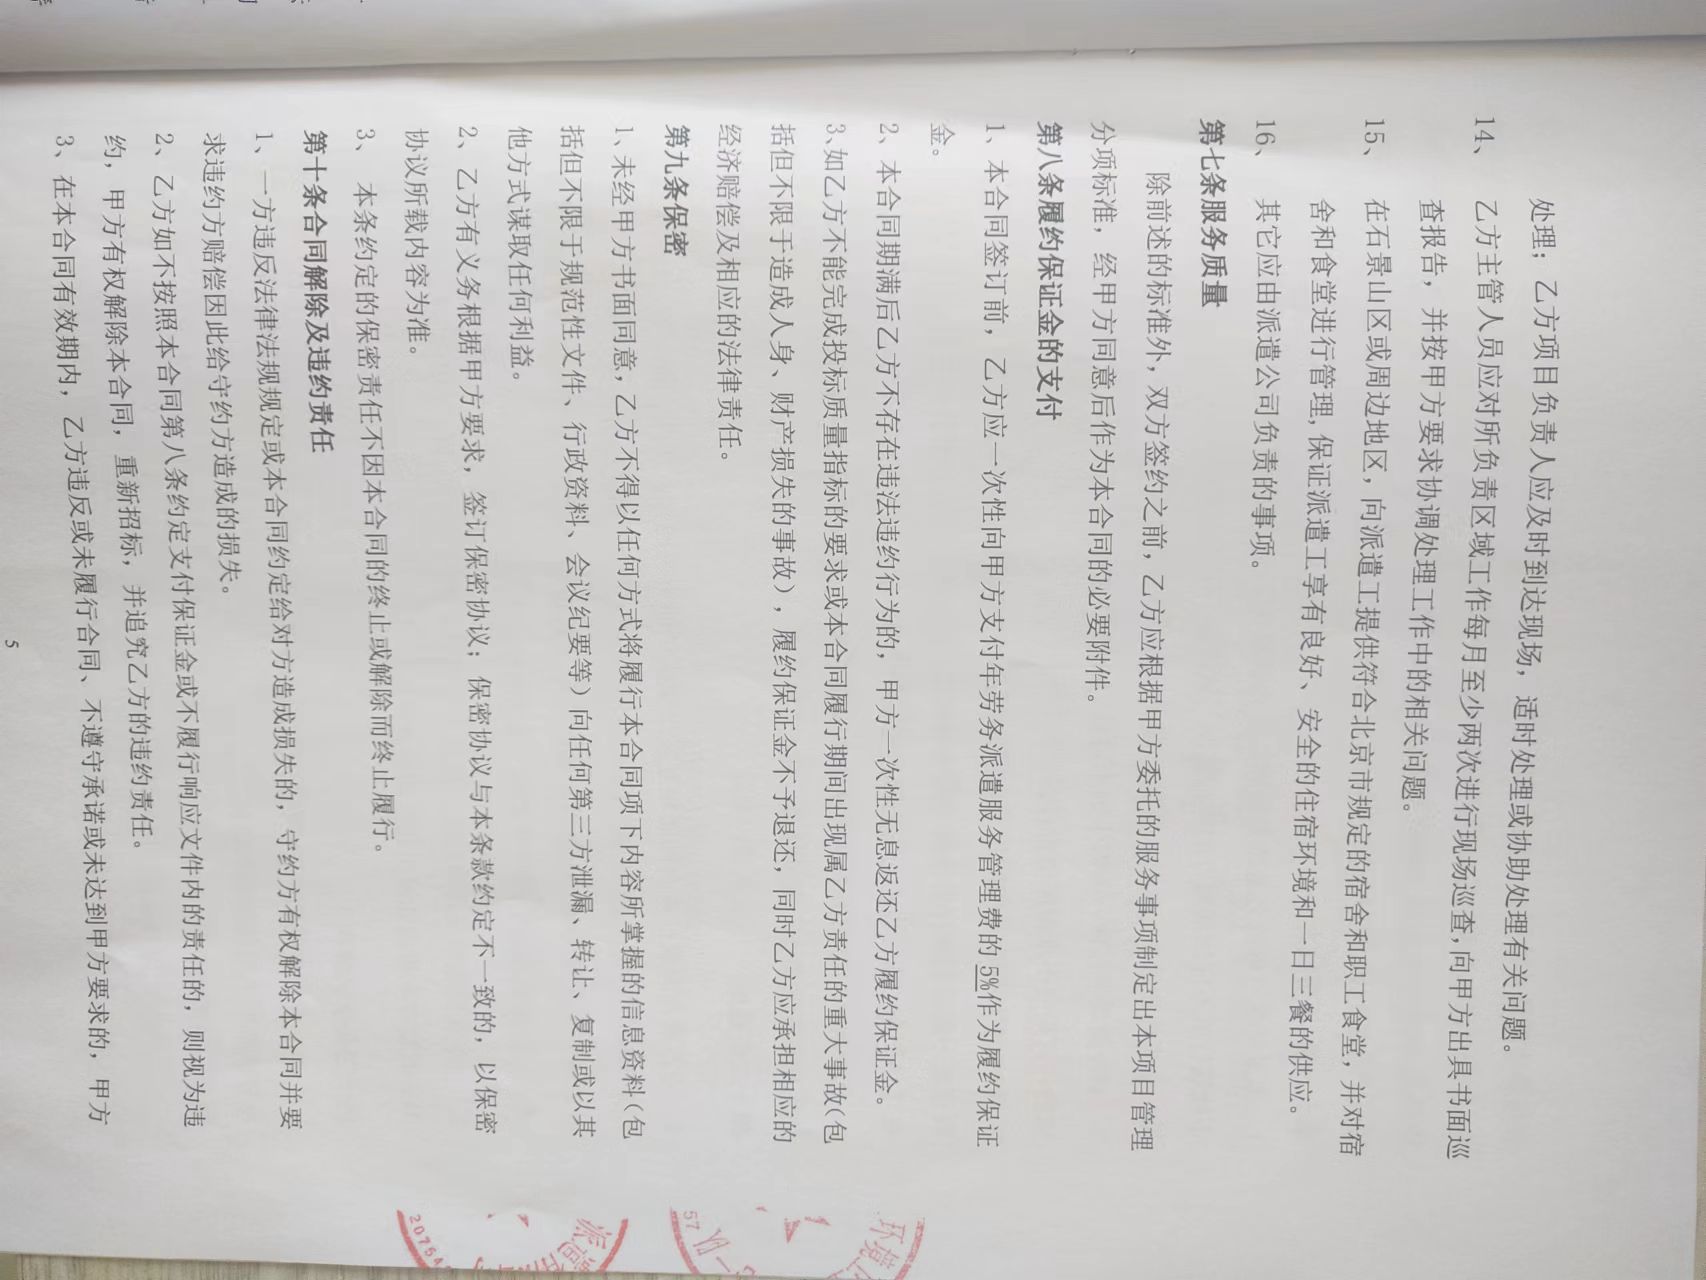 处理；乙方项目负责人应及时到达现场，适时处理或协助处理有关问题。
14、 乙方主管人员应对所负责区域工作每月至少两次进行现场巡查,向甲方出具书面巡
查报告，并按甲方要求协调处理工作中的相关问题。
15、 在石景山区或周边地区，向派遣工提供符合北京市规定的宿舍和职工食堂，并对宿
舍和食堂进行管理,保证派遣工享有良好、安全的住宿环境和一日三餐的供应。
16、 其它应由派遣公司负责的事项。
第七条服务质量
除前述的标准外，双方签约之前，乙方应根据甲方委托的服务事项制定出本项目管理
分项标准，经甲方同意后作为本合同的必要附件。
第八条履约保证金的支付
1、本合同签订前，乙方应一次性向甲方支付年劳务派遣服务管理费的 5%作为履约保证
金。
2、本合同期满后乙方不存在违法违约行为的，甲方一次性无息返还乙方履约保证金。
3、如乙方不能完成投标质量指标的要求或本合同履行期间出现属乙方责任的重大事故(包
括但不限于造成人身、财产损失的事故)，履约保证金不予退还，同时乙方应承担相应的
经济赔偿及相应的法律责任。
第九条保密
1、未经甲方书面同意,乙方不得以任何方式将履行本合同项下内容所掌握的信息资料(包
括但不限于规范性文件、行政资料、会议纪要等)向任何第三方泄漏、转让、复制或以其
他方式谋取任何利益。
2、乙方有义务根据甲方要求，签订保密协议；保密协议与本条款约定不一致的，以保密
协议所载内容为准。
3、 本条约定的保密责任不因本合同的终止或解除而终止履行。
第十条合同解除及违约责任
1、一方违反法律法规规定或本合同约定给对方造成损失的，守约方有权解除本合同并要
求违约方赔偿因此给守约方造成的损失。
2、乙方如不按照本合同第八条约定支付保证金或不履行响应文件内的责任的，则视为违
约，甲方有权解除本合同，重新招标，并追究乙方的违约责任。
3、在本合同有效期内，乙方违反或未履行合同、不遵守承诺或未达到甲方要求的，甲方
5
环境
57
派遣
20754